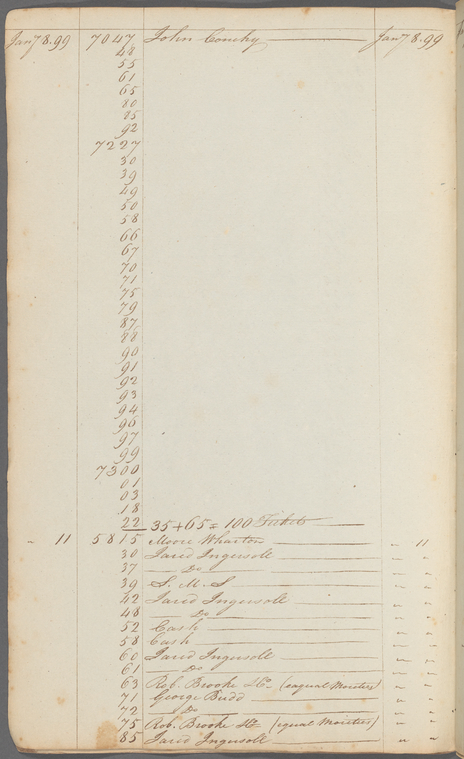 Jany 8.99 7047 John Conchy Jany 8.99
48
55
61
65
80
85
92
7227
30
39
49
50
58
66
67
70
71
75
79
87
88
90
91
92
93
94
96
97
99
7300
01
03
18
22 35+65=100 Tickets
" 11 5815 Moore Wharton " 11
30 Jared Ingersoll " "
37 Do " "
39 S. M. S " "
42 Jared Ingersoll " "
48 Do " "
52 Cash " "
58 Cash " "
60 Jared Ingersoll " "
61 Do " "
63 Rob. Brooke (equal Moieties) " "
71 George Budd " "
72 Do " "
75 Rob. Brooke (equal Moieties) " "
85 Jared Ingersoll " "